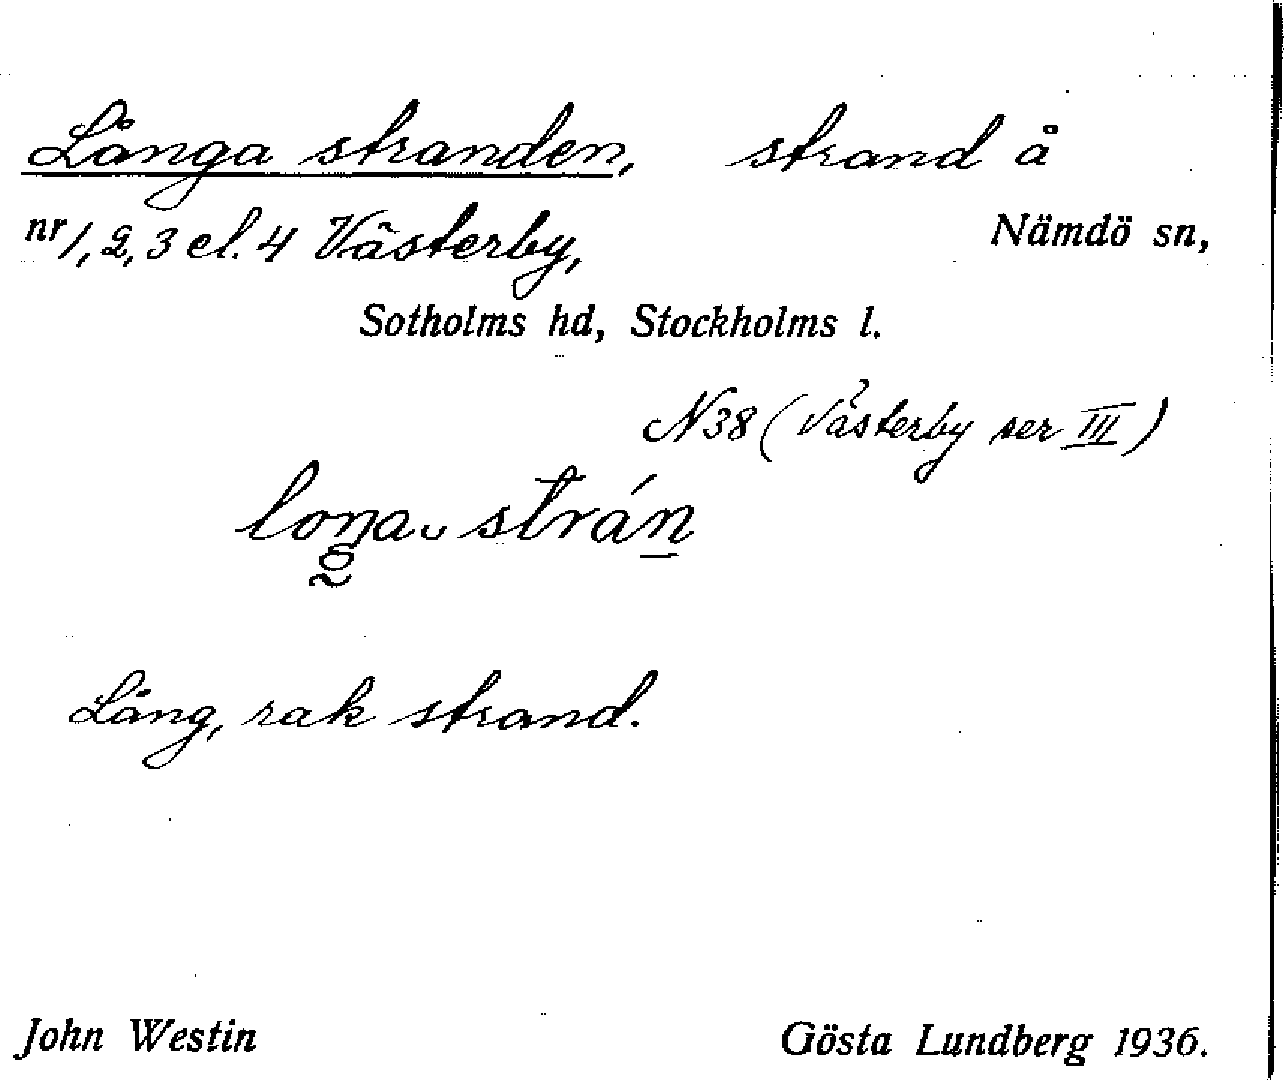 Långa stranden, strand å
nr 1, 2, 3 el. 4 Västerby, Nämdö sn,
Sotholms hd, Stockholms l.
N 38 (Västerby ser III)
loŋa strán
Lång, rak strand.
John Westin Gösta Lundberg 1936.